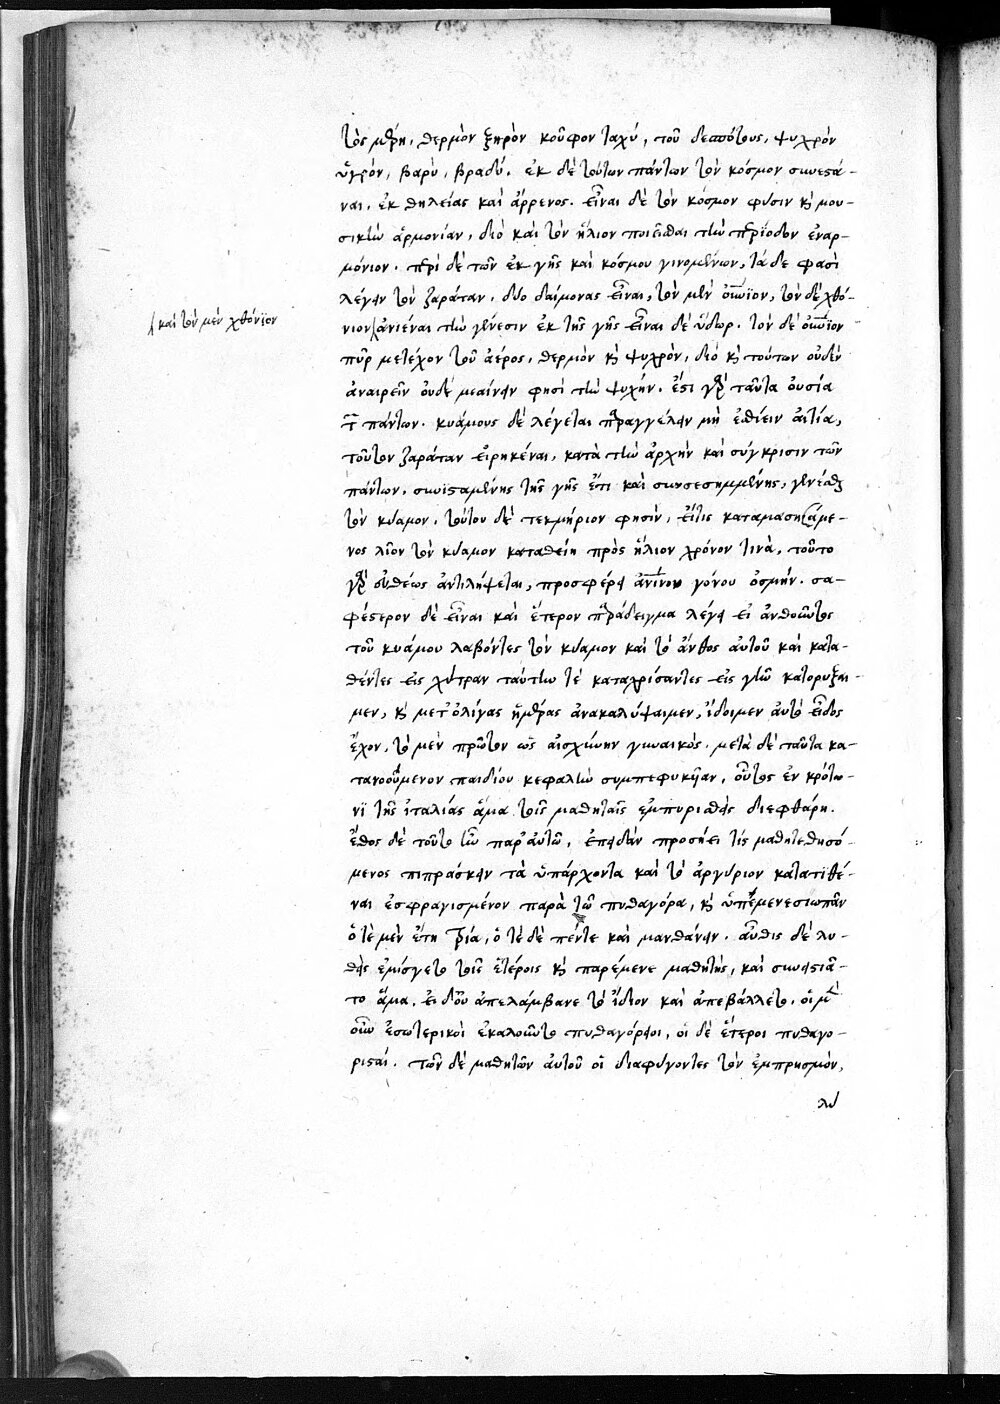 τὸς μέρη, θερμὸν ξηρὸν κοῦφον ταχύ, τοῦ δεσπότους, ψυχρὸν
ὑγρόν, βαρὺ, βραδύ. ἐκ δὲ τούτων πάντων τὸν κόσμον συνεστά-
ναι, ἐκ θηλείας καὶ ἄρρενος. εἶναι δὲ τὸν κόσμον φύσιν κὶ μου-
σικὴν ἁρμονίαν, διὸ καὶ τὸν ἥλιον ποιεῖσθαι τὴν περίοδον ἐναρ-
μόνιον. περὶ δὲ τῶν ἐκ γῆς καὶ κόσμου γινομένων, τά δε φασὶ
λέγειν τὸν ζαράταν. δύο δαίμονας εἶναι, τὸν μὲν οὐράνιον, τὸν δὲ χθό-
νιον ἀνιέναι τὴν γένεσιν ἐκ τῆς γῆς εἶναι δὲ ὕδωρ. τὸν δὲ οὐράνιον
καὶ τὸν μὲν χθόνϊον
πῦρ μετέχον τοῦ ἀέρος, θερμὸν κὶ ψυχρὸν, διὸ κὶ τούτων οὐδὲν
ἀναιρεῖν οὐδὲ μιαίνειν φησὶ τὴν ψυχήν. ἔστι γὰρ ταῦτα οὐσία
τῶν πάντων. κυάμους δὲ λέγεται παραγγέλειν μὴ ἐσθίειν αἰτία,
τοῦτον ζαράταν εἰρηκέναι, κατὰ τὴν ἀρχὴν καὶ σύγκρισιν τῶν
πάντων, συνϊσταμένης τῆς γῆς ἔτι καὶ συνσεσημμένης, γενέσθαι
τὸν κύαμον. τούτου δὲ τεκμήριον φησὶν, εἴτις καταμασησάμε-
νος λῖον τὸν κύαμον καταθείη πρὸς ἥλιον χρόνον τινὰ, τοῦτο
γὰρ εὐθέως ἀντιλήψεται, προσφέρει ἀνθρώπινον γόνου ὀσμήν. σα-
φέστερον δὲ εἶναι καὶ ἕτερον παράδειγμα λέγει εἰ ἀνθοῦντος
τοῦ κυάμου λαβόντες τὸν κύαμον καὶ τὸ ἄνθος αὐτοῦ καὶ κατα-
θέντες εἰς χύτραν ταύτην τὲ καταχρίσαντες εἰς γῆν κατορύξαι-
μεν, κὶ μετ' ὀλίγας ἡμέρας ἀνακαλύψαιμεν, ἴδοιμεν αὐτὸ εἶδος
ἔχον, τὸ μὲν πρῶτον ὡς αἰσχύνην γυναικὸς. μετὰ δὲ ταῦτα κα-
τανοούμενον παιδίου κεφαλὴν συμπεφυκῆαν, οὗτος ἐν κρότω-
νϊ τῆς ἰταλίας ἅμα τοῖς μαθηταῖς ἐμπυρισθεὶς διεφθάρη.
ἔθος δὲ τοῦτο ἦν παρ' αὐτῷ, ἐπειδὰν προσήει τίς μαθητευθησό-
μενος πιπράσκειν τὰ ὑπάρχοντα καὶ τὸ ἀργύριον κατατιθέ-
ναι ἐσφραγισμένον παρὰ τῷ πυθαγόρα, κὶ ὑπέμενε σιωπᾶν
ὁ τὲ μὲν ἔτη τρία, ὁ τὲ δὲ πέντε καὶ μανθάνειν. αὖθις δὲ λυ-
θεὶς ἐμίσγετο τοῖς ἑτέροις κὶ παρέμενε μαθητὴς, καὶ συνειστιᾶ-
το ἅμα. εἰ δ' οὖ ἀπελάμβανε τὸ ἴδιον καὶ ἀπεβάλλετο. οἱ μὲν
οὖν ἐσωτερικοὶ ἐκαλοῦντο πυθαγόρειοι, οἱ δὲ ἕτεροι πυθαγο-
ρισταί. τῶν δὲ μαθητῶν αὐτοῦ οἱ διαφύγοντες τὸν ἐμπρησμὸν,
λύ